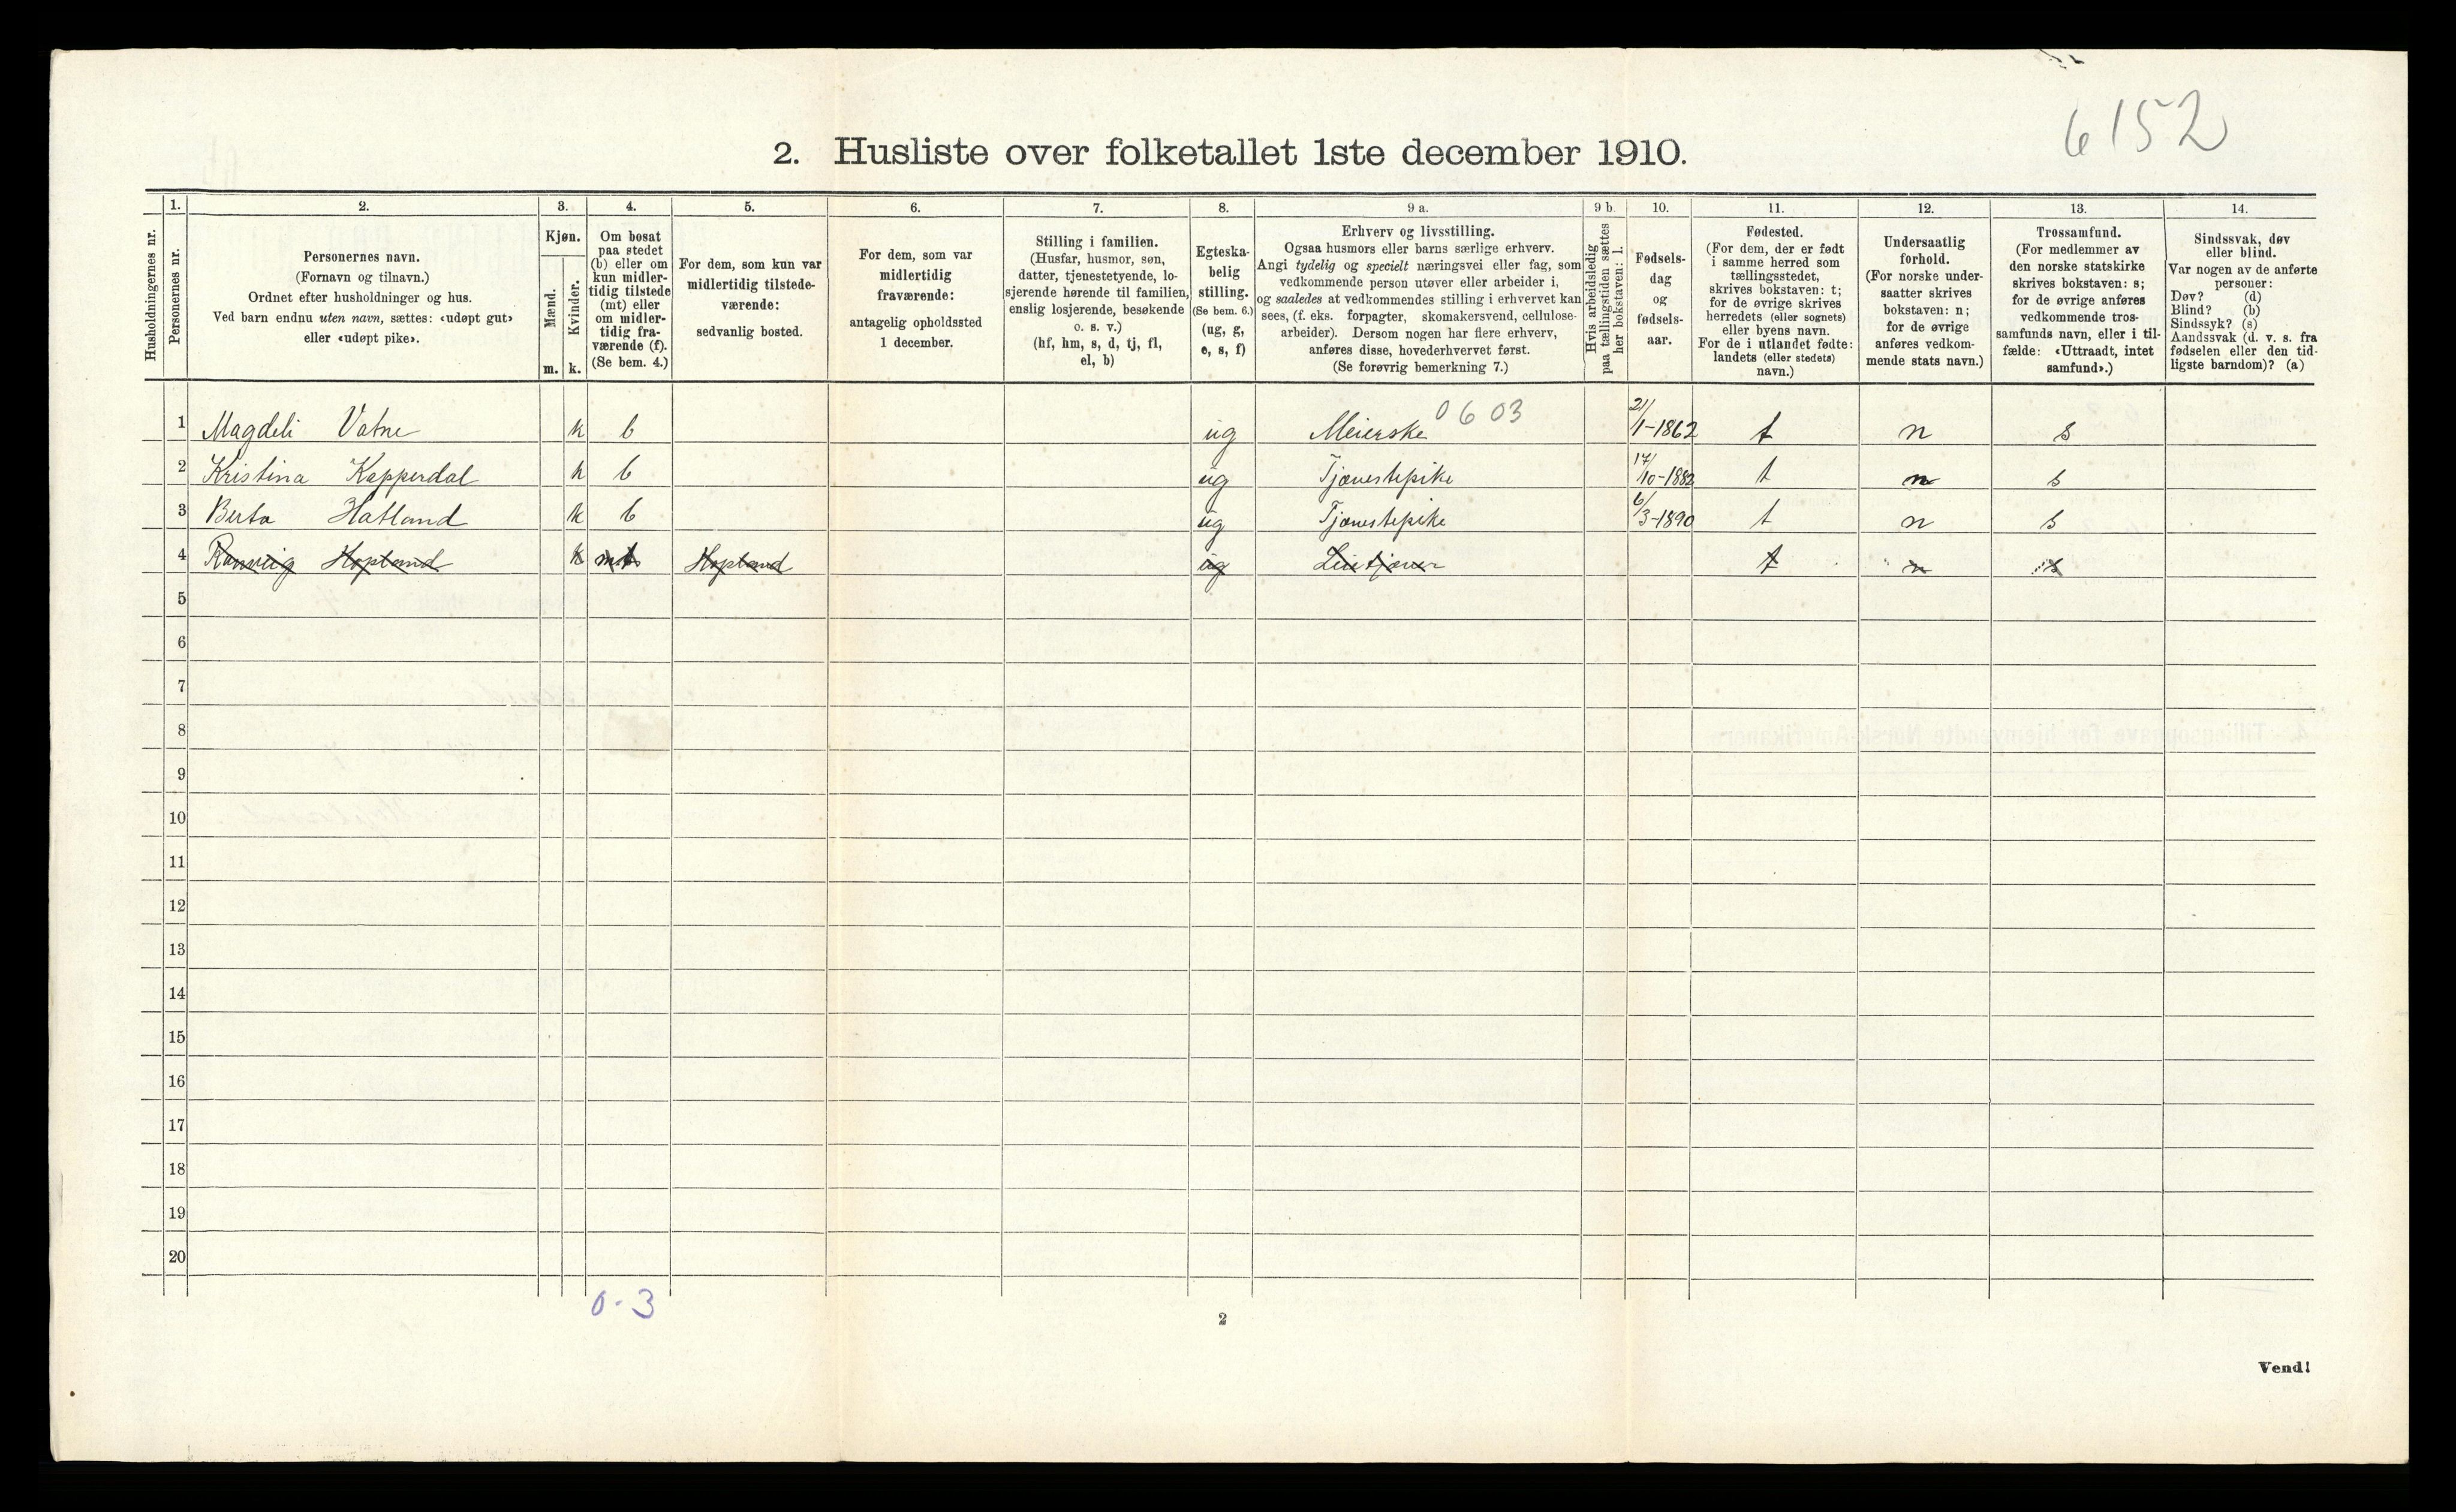 6152
2. Husliste over folketallet 1ste december 1910.
Husholdningernes nr.
1.
Personernes nr.
2.
Personernes navn.
(Fornavn og tilnavn.)
Ordnet efter husholdninger og hus.
Ved barn endnu uten navn, sættes: «udøpt gut»
eller «udøpt pike».
3.
Kjøn.
Mænd.
Kvinder.
m. k.
4.
Om bosat
paa stedet
(b) eller om
kun midler-
tidig tilstede
(mt) eller
om midler-
tidig fra-
værende (f).
(Se bem. 4.)
5.
For dem, som kun var
midlertidig tilstede-
værende:
sedvanlig bosted.
6.
For dem, som var
midlertidig
fraværende:
antagelig opholdssted
1 december.
7.
Stilling i familien.
(Husfar, husmor, søn,
datter, tjenestetyende, lo-
sjerende hørende til familien,
enslig losjerende, besøkende
o. s. v.)
(hf, hm, s, d, tj, fl,
el, b)
8.
Egteska-
belig
stilling.
(Se bem. 6.)
(ug, g,
e, s, f)
9 a.
Erhverv og livsstilling.
Ogsaa husmors eller barns særlige erhverv.
Angi tydelig og specielt næringsvei eller fag, som
vedkommende person utøver eller arbeider i,
og saaledes at vedkommendes stilling i erhvervet kan
sees, (f. eks. forpagter, skomakersvend, cellulose-
arbeider). Dersom nogen har flere erhverv,
anføres disse, hovederhvervet først.
(Se forøvrig bemerkning 7.)
9 b.
Hvis arbeidsledig
paa tællingstiden sættes
her bokstaven: l.
10.
Fødsels-
dag
og
fødsels-
aar.
11.
Fødested.
(For dem, der er født
i samme herred som
tællingsstedet,
skrives bokstaven: t;
for de øvrige skrives
herredets (eller sognets)
eller byens navn.
For de i utlandet fødte:
landets (eller stedets)
navn.)
12.
Undersaatlig
forhold.
(For norske under-
saatter skrives
bokstaven: n;
for de øvrige
anføres vedkom-
mende stats navn.)
13.
Trossamfund.
(For medlemmer av
den norske statskirke
skrives bokstaven: s;
for de øvrige anføres
vedkommende tros-
samfunds navn, eller i til-
fælde: «Uttraadt, intet
samfund».)
14.
Sindssvak, døv
eller blind.
Var nogen av de anførte
personer:
Døv? (d)
Blind? (b)
Sindssyk? (s)
Aandssvak (d. v. s. fra
fødselen eller den tid-
ligste barndom)? (a)
1 Magdeli Vatne k b ug Meierske 0603 21/1-1862 t n s
2 Kristina Kapperdal k b ug Tjænestepike 17/10-1882 t n s
3 Berta Hatland k b ug Tjænestepike 6/3-1890 t n s
4 Ranveig Hopland k mt Hopland ug t n s
5
6
7
8
9
10
11
12
13
14
15
16
17
18
19
20
0-3
2
Vend!